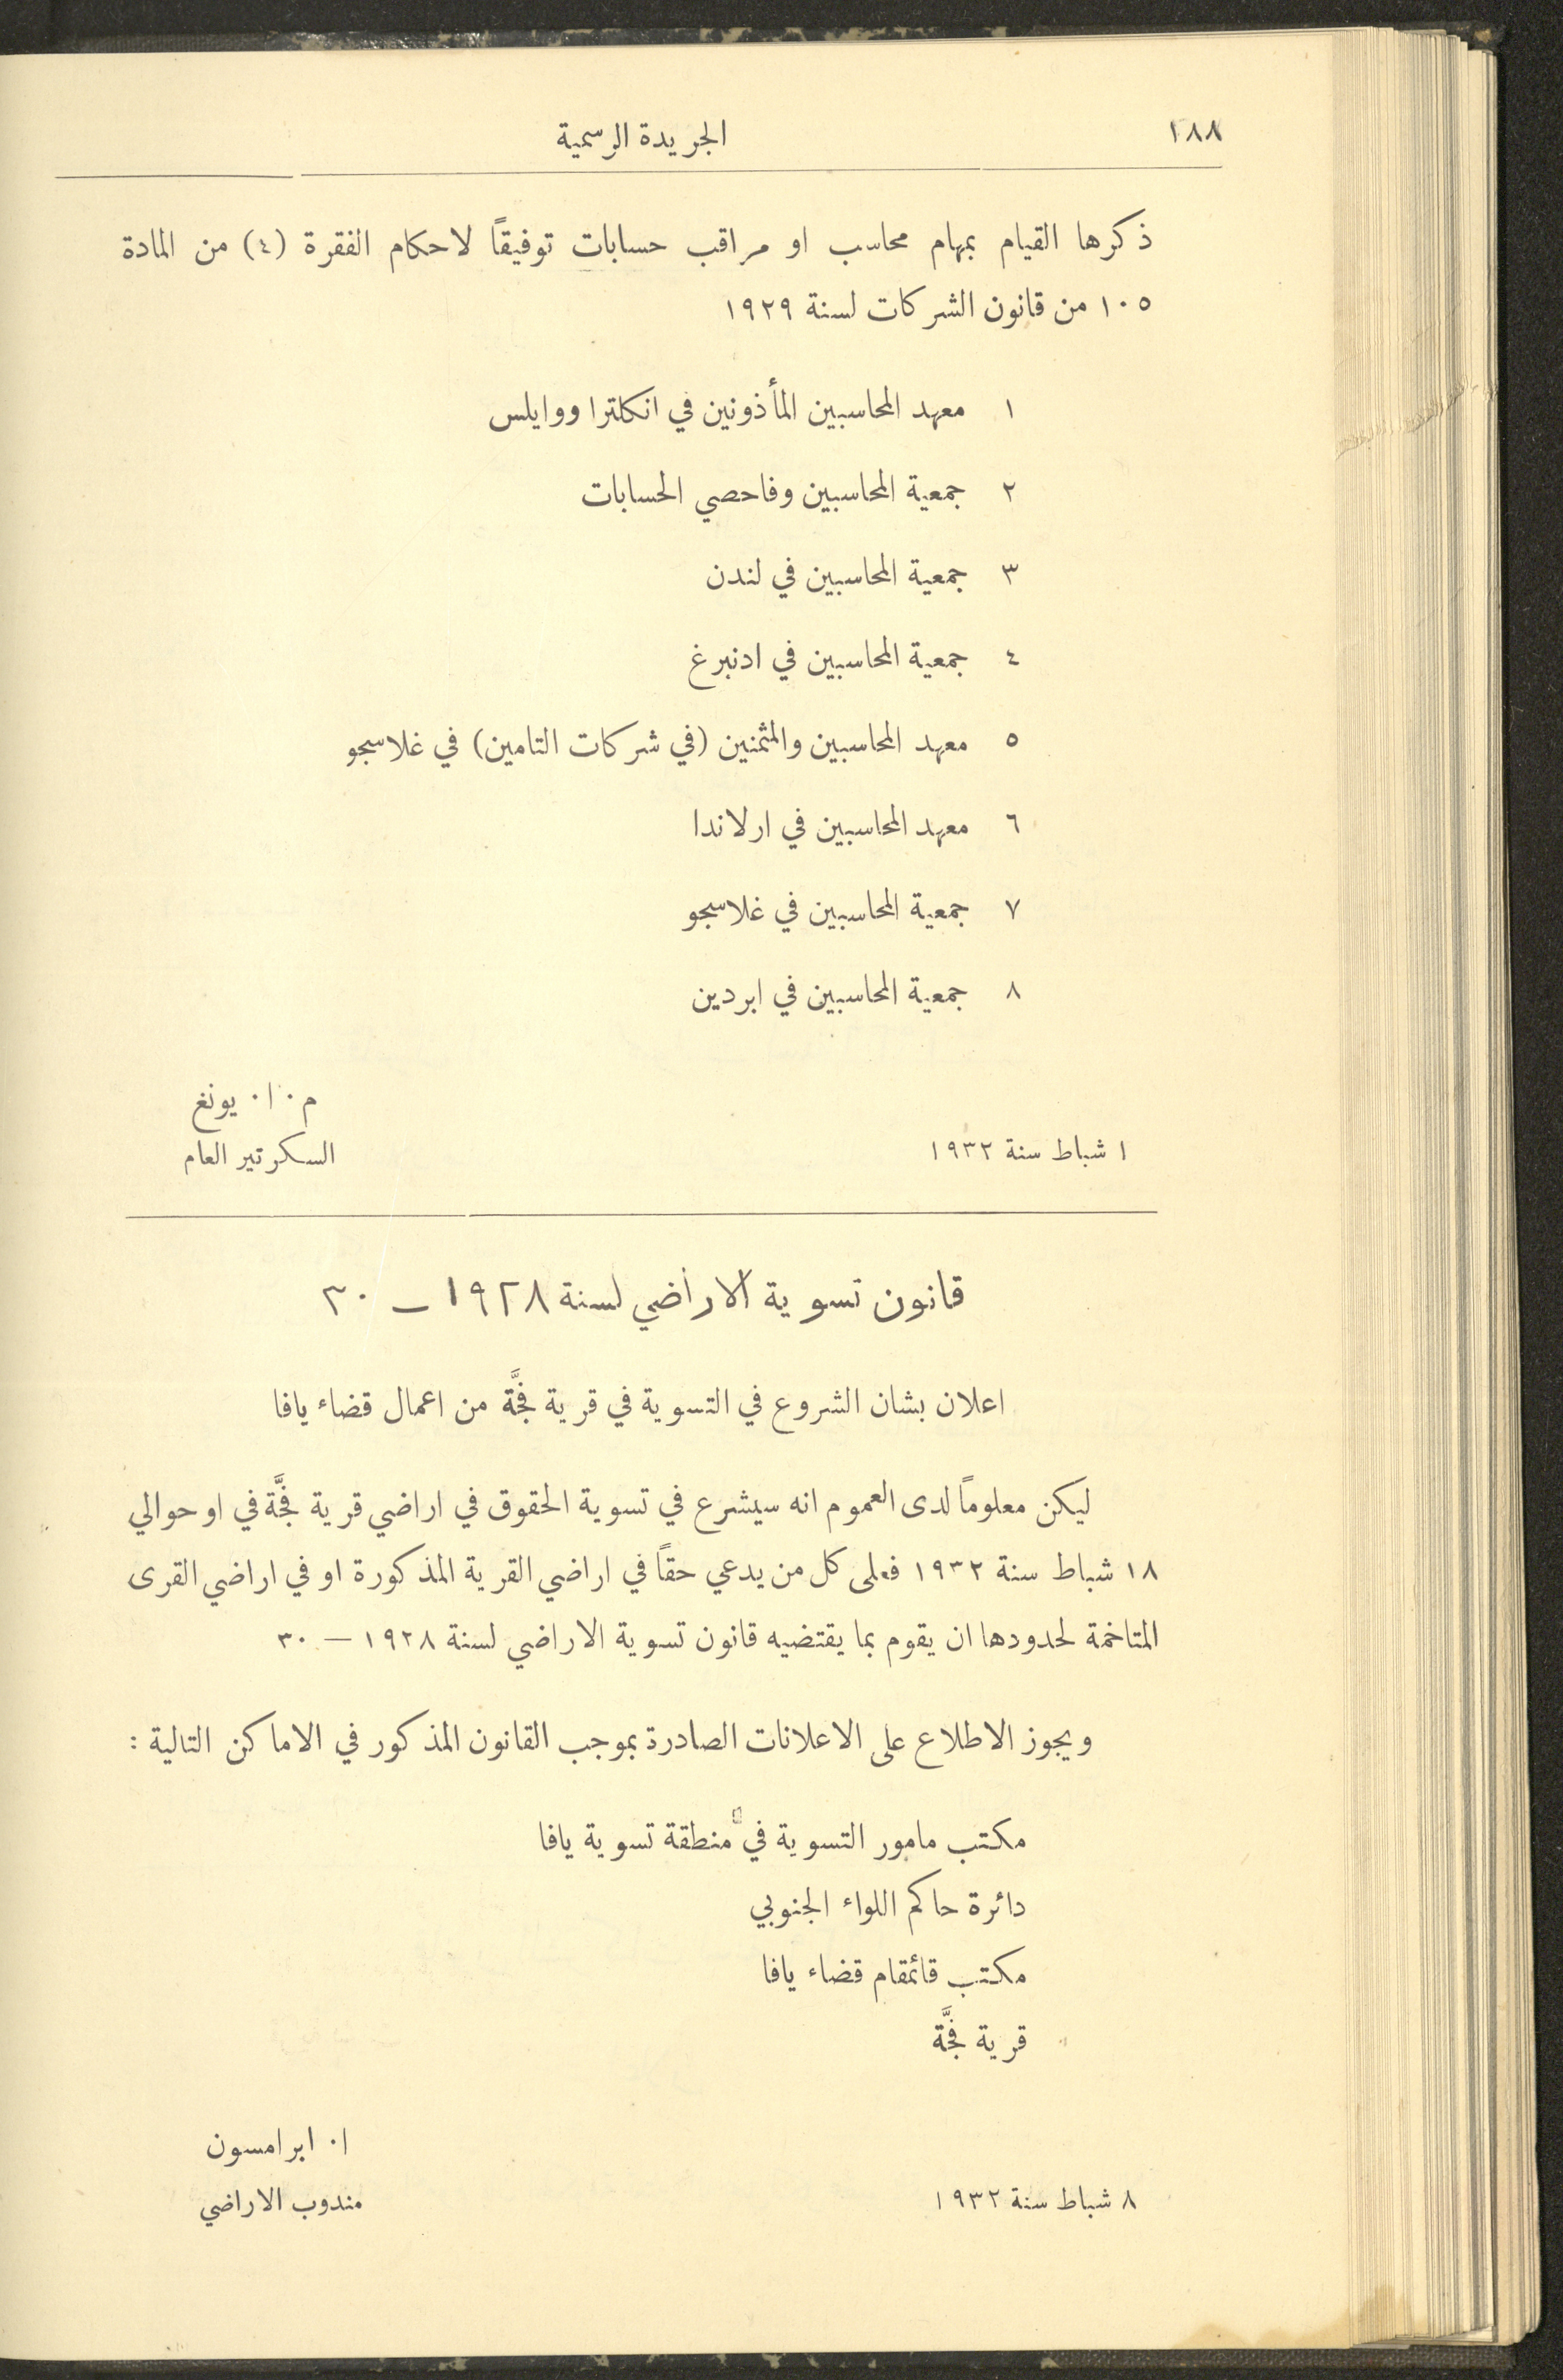 ١٨٨
الجريدة الرسمية
ذكرها القيام بمهام محاسب او مراقب حسابات توفيقاً لاحكام الفقرة (٤) من المادة
١٠٥ من قانون الشركات لسنة ١٩٢٩
١ معهد المحاسبين المأذونين في انكلترا ووايلس
٢ جمعية المحاسبين وفاحصي الحسابات
٣ جمعية المحاسبين في لندن
٤ جمعية المحاسبين في ادنبرغ
٥ معهد المحاسبين والمثمنين (في شركات التامين) في غلاسجو
٦ معهد المحاسبين في ارلاندا
٧ جمعية المحاسبين في غلاسجو
٨ جمعية المحاسبين في ابردين
م٠ ا٠ يونغ
١ شباط سنة ١٩٣٢
السكرتير العام
قانون تسوية الاراضي لسنة ١٩٢٨ – ٣٠
اعلان بشان الشروع في التسوية في قرية فجَّة من اعمال قضاء يافا
ليكن معلوماً لدى العموم انه سيشرع في تسوية الحقوق في اراضي قرية فجَّة في او حوالي
١٨ شباط سنة ١٩٣٢ فعلى كل من يدعي حقاً في اراضي القرية المذكورة او في اراضي القرى
المتاخمة لحدودها ان يقوم بما يقتضيه قانون تسوية الاراضي لسنة ١٩٢٨ – ٣٠
ويجوز الاطلاع على الاعلانات الصادرة بموجب القانون المذكور في الاماكن التالية :
مكتب مامور التسوية في منطقة تسوية يافا
دائرة حاكم اللواء الجنوبي
مكتب قائمقام قضاء يافا
قرية فجَّة
ا٠ ابرامسون
٨ شباط سنة ١٩٣٢
مندوب الاراضي